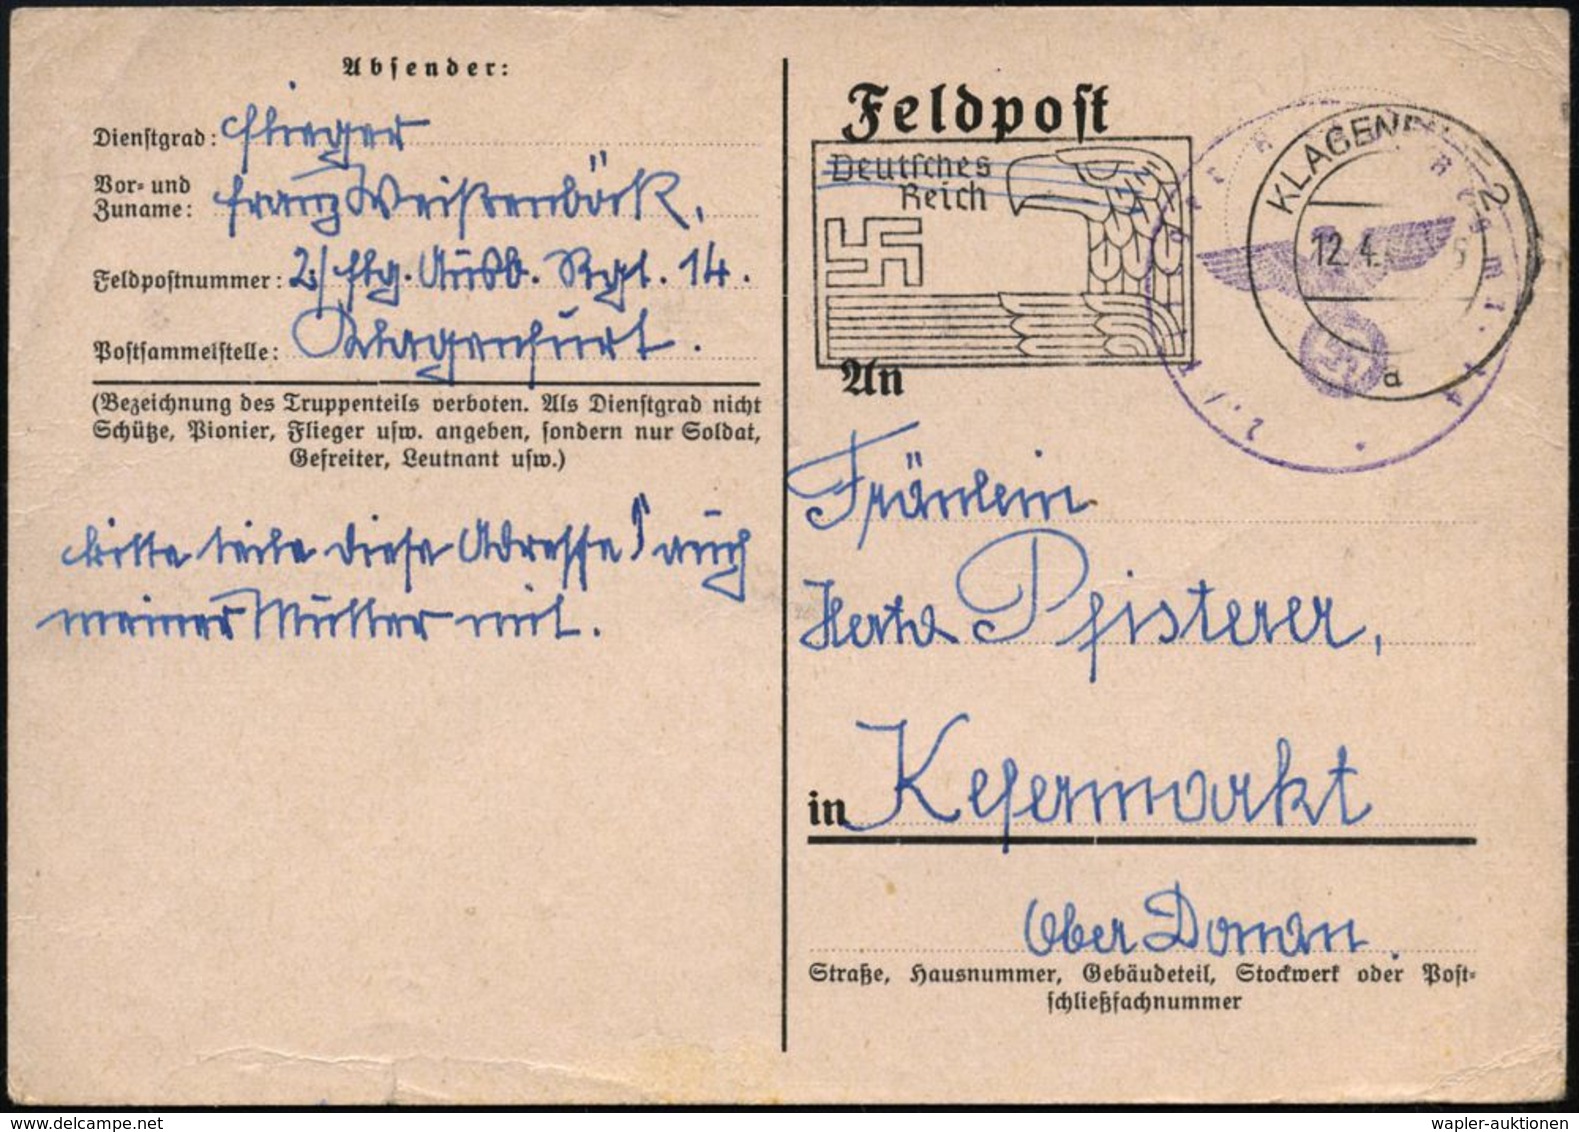 Absender:
Dienstgrad: Flieger
Vor- und
Zuname: Franz Weißenböck,
Feldpostnummer: 2./Flg. Ausb. Rgt. 14.
Postsammelstelle: Klagenfurt.
(Bezeichnung des Truppenteils verboten. Als Dienstgrad nicht
Schütze, Pionier, Flieger usw. angeben, sondern nur Soldat,
Gefreiter, Leutnant usw.)
bitte teile diese Adresse auch
meiner Mutter mit.
Feldpost
Deutsches
Reich
KLAGENFU 2
12.4.
a
2./ Rgmt. 14
An
Fräulein
Herta Pfisterer,
in Kefermarkt
Ober Donau.
Straße, Hausnummer, Gebäudeteil, Stockwerk oder Post-
schließfachnummer
wapler-auktionen
delcampe.net